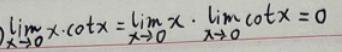 ) lim x→0 x·cotx = lim x→0 x · lim x→0 cotx = 0